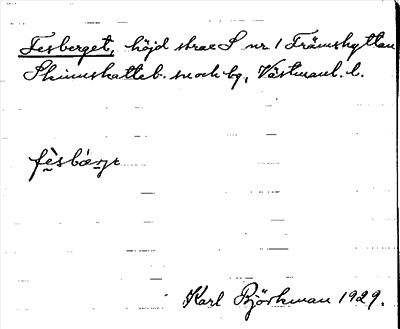 Fesberget, höjd strax S nr 1 Främshyttan
Skinnskatteb. sn och bg, Västmanl. l.
fèsbær̀jt
Karl Björkman 1929.